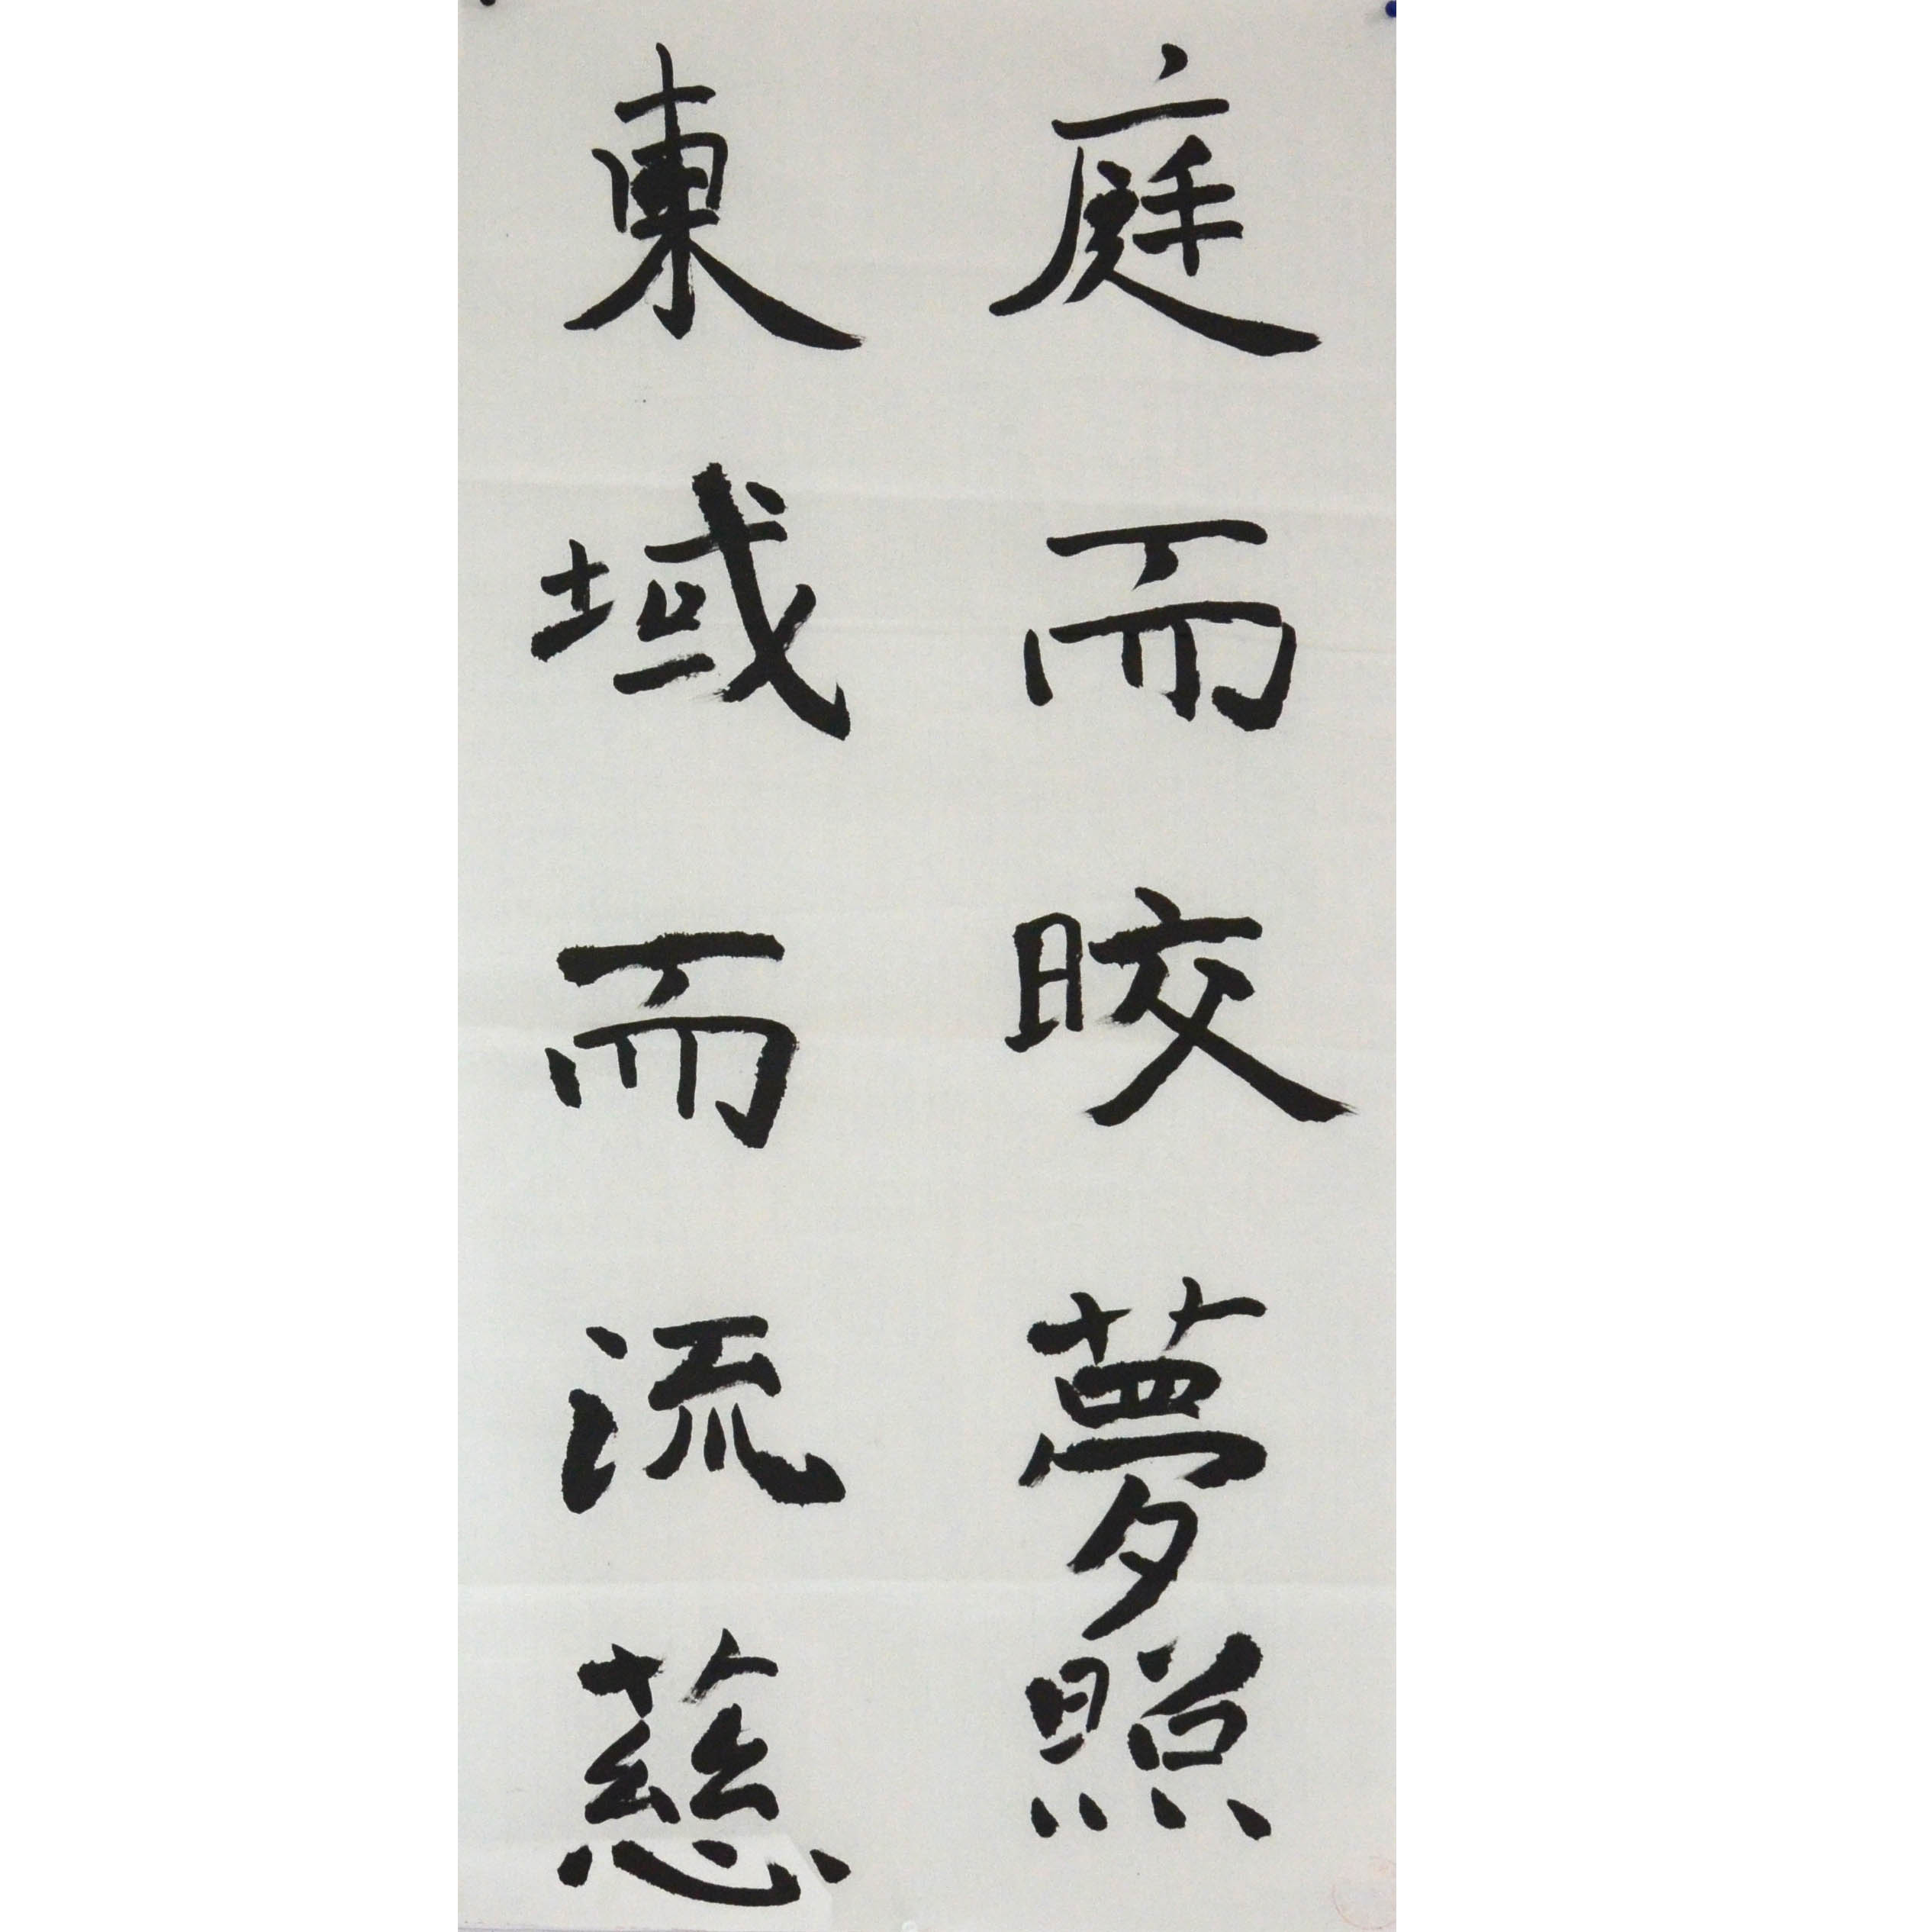 庭而皎夢照
東域而流慈